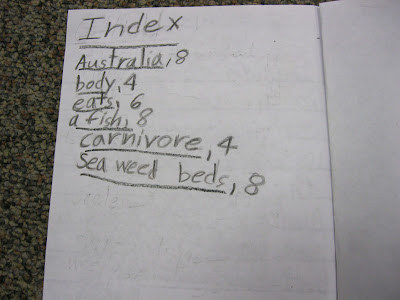 Index
Australia, 8
body, 4
eats, 6
a fish, 8
carnivore, 4
Sea weed beds, 8